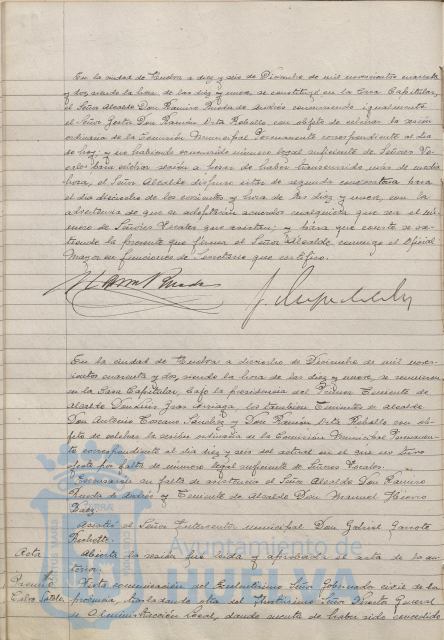 En la ciudad de Huelva a diez y seis de Diciembre de mil novecientos cuarenta
y dos, siendo la hora de las diez y nueve, se constituyó en la Casa Capitular,
el Señor Alcalde Don Ramiro Rueda de Andrés concurriendo igualmente
el Señor Gestor Don Ramón Orta Rebollo con objeto de celebrar la sesión
ordinaria de la Comisión Municipal Permanente correspondiente al día
de hoy; y no habiendo concurrido número legal suficiente de Señores Vo-
cales para celebrar sesión a pesar de haber transcurrido más de media
hora, el Señor Alcalde dispuso citar de segunda convocatoria para
el día dieciocho de los corrientes y hora de las diez y nueve, con la
advertencia de que se adoptarán acuerdos cualquiera que sea el nú-
mero de Señores Vocales que asistan; y para que conste se ex-
tiende la presente que firma el Señor Alcalde, conmigo el Oficial
Mayor en funciones de Secretario que certifico.
En la ciudad de Huelva a dieciocho de Diciembre de mil nove-
cientos cuarenta y dos, siendo la hora de las diez y nueve, se reunieron
en la Casa Capitular, bajo la presidencia del Primer Teniente de
alcalde Don Luis los también Tenientes de alcalde
Don Antonio Toscano Sánchez y Don Ramón Orta Rebollo con ob-
jeto de celebrar la sesión ordinaria de la Comisión Municipal Permanen-
te correspondiente al día diez y seis del actual en el que no tuvo
efecto por falta de número legal suficiente de Señores Vocales.
Excusaron su falta de asistencia el Señor Alcalde Don Ramiro
Rueda de Andrés y Teniente de Alcalde Don Manuel
Báez.
Asistió el Señor Interventor municipal Don Gabriel Garrote
Acta Abierta la sesión fué leída y aprobada el acta de la an-
terior.
Premio Vista comunicación del Excelentísimo Señor Gobernador civil de la
provincia, trasladando otra del Ilustrísimo Señor Director General
de Administración Local, dando cuenta de haber sido concedido
Ayuntamiento de
HUELVA